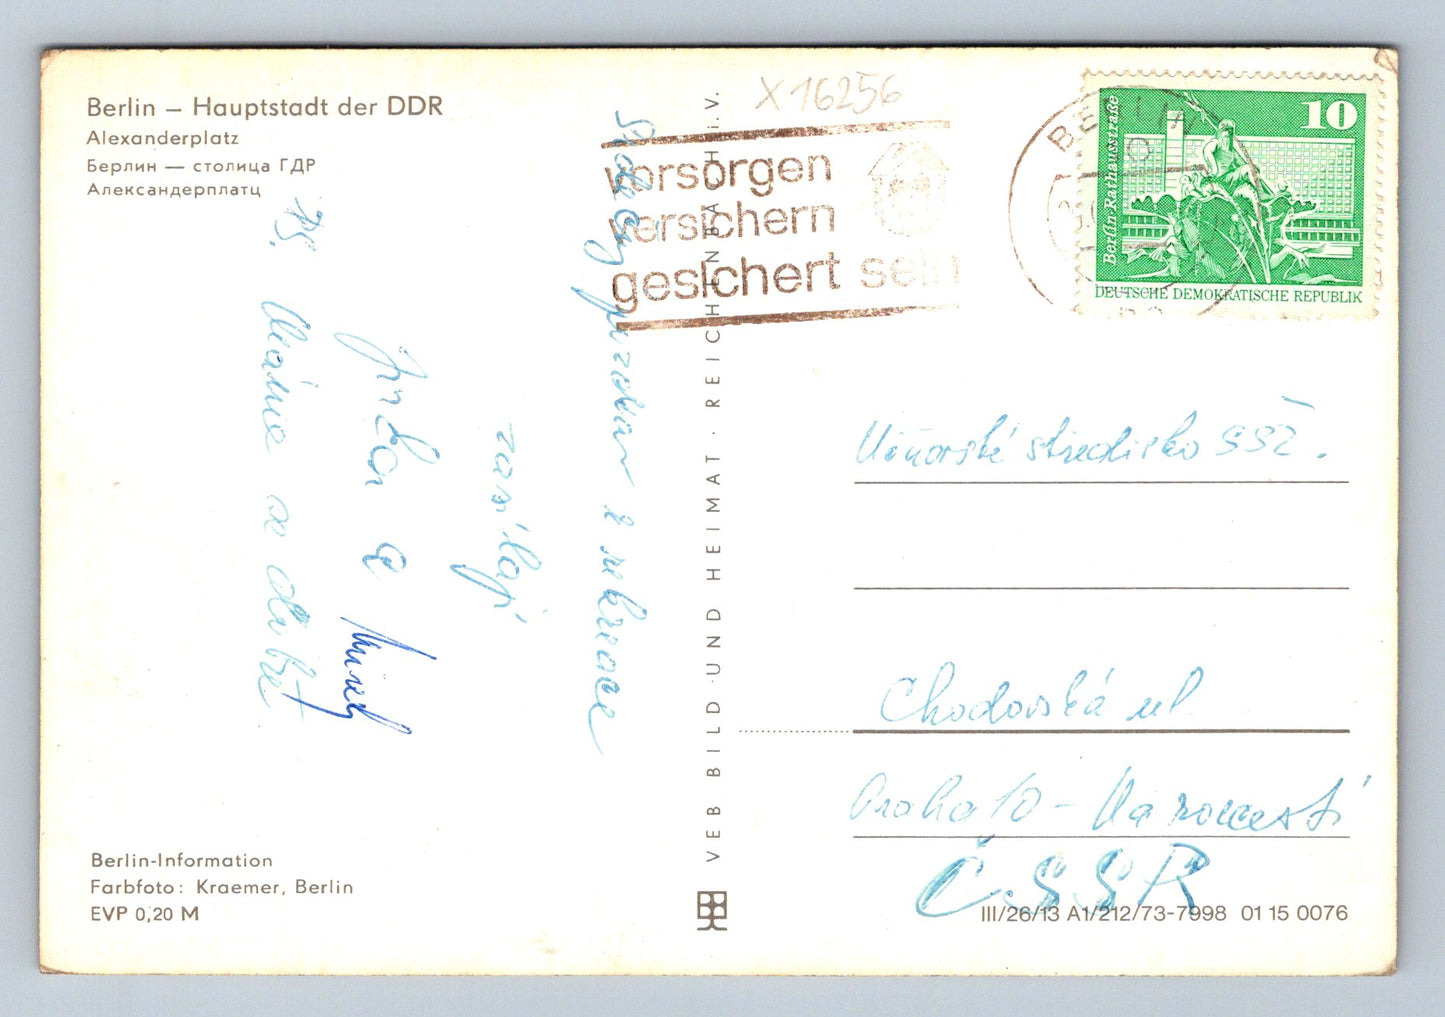 Berlin – Hauptstadt der DDR
Alexanderplatz
Берлин — столица ГДР
Александерплатц
X 16256
vorsorgen
versichern
gesichert sein
BERLIN
10
Berlin-Rathausstraße
DEUTSCHE DEMOKRATISCHE REPUBLIK
pozdrav z
zasílají
a Mirek
PS. Máme se dobře
VEB BILD UND HEIMAT · REICHENBACH i.V.
Učňovské středisko SSŽ.
Chodovská ul
Praha 10 –
ČSSR
Berlin-Information
Farbfoto: Kraemer, Berlin
EVP 0,20 M
III/26/13 A1/212/73-7998 01 15 0076